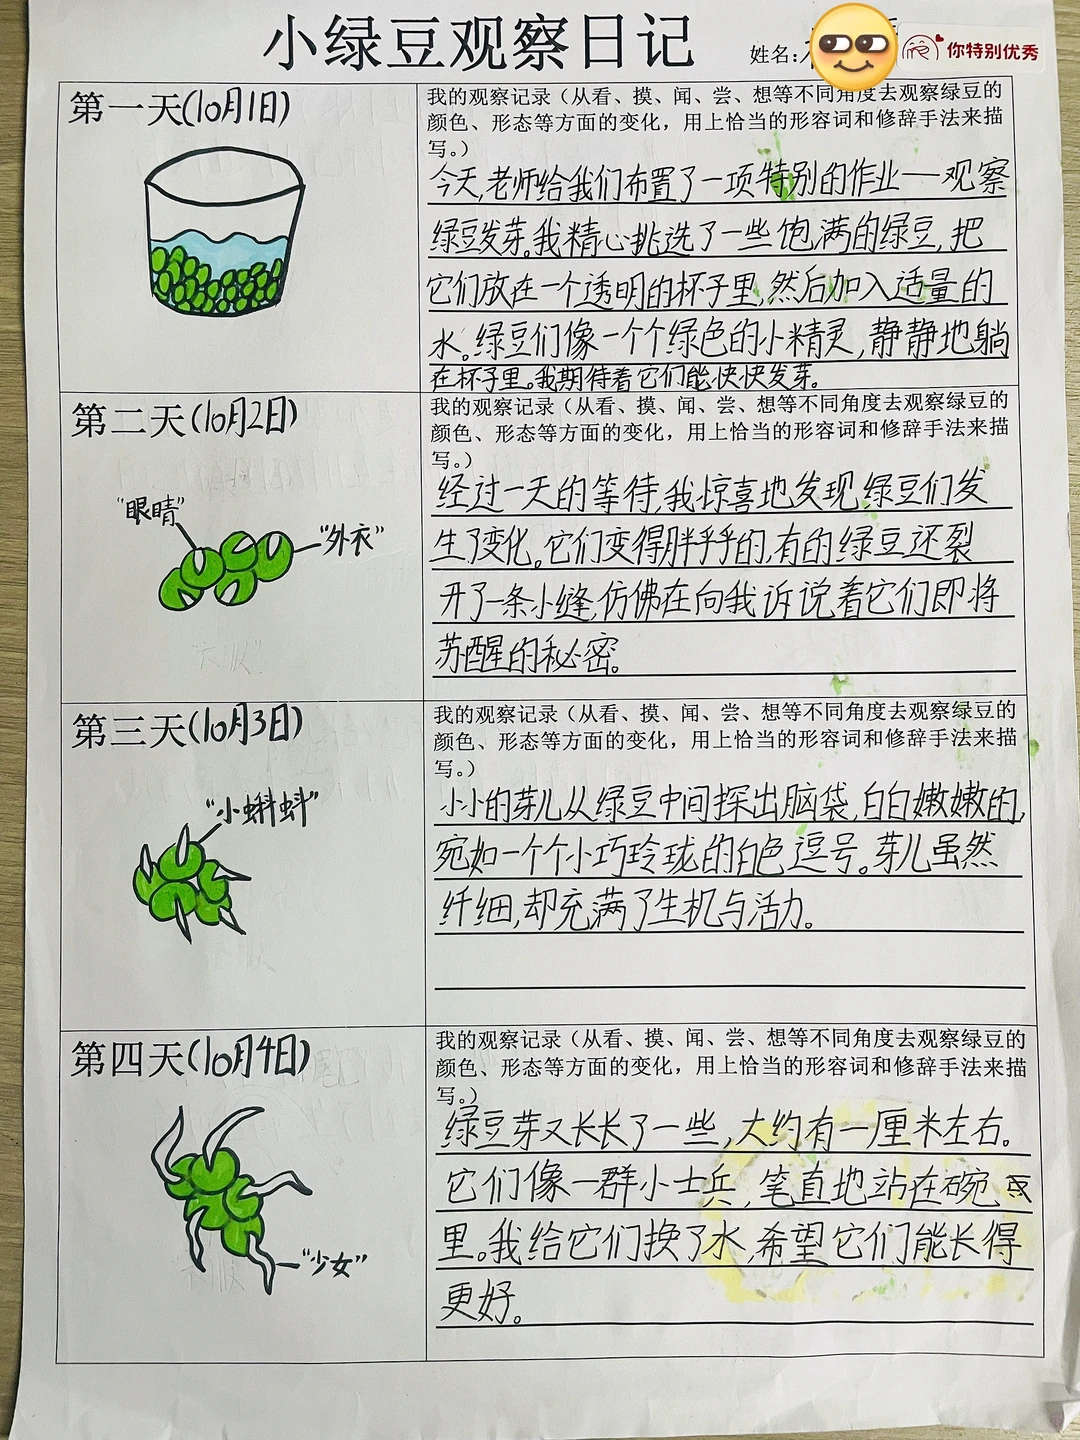 小绿豆观察日记
姓名:
你特别优秀
第一天(10月1日)
我的观察记录（从看、摸、闻、尝、想等不同角度去观察绿豆的
颜色、形态等方面的变化，用上恰当的形容词和修辞手法来描
写。）
今天,老师给我们布置了一项特别的作业——观察
绿豆发芽。我精心挑选了一些饱满的绿豆,把
它们放在一个透明的杯子里,然后加入适量的
水。绿豆们像一个个绿色的小精灵,静静地躺
在杯子里。我期待着它们能快快发芽。
第二天(10月2日)
"眼睛"
"外衣"
我的观察记录（从看、摸、闻、尝、想等不同角度去观察绿豆的
颜色、形态等方面的变化，用上恰当的形容词和修辞手法来描
写。）
经过一天的等待,我惊喜地发现绿豆们发
生了变化。它们变得胖乎乎的,有的绿豆还裂
开了一条小缝,仿佛在向我诉说着它们即将
苏醒的秘密。
第三天(10月3日)
"小蝌蚪"
我的观察记录（从看、摸、闻、尝、想等不同角度去观察绿豆的
颜色、形态等方面的变化，用上恰当的形容词和修辞手法来描
写。）
小小的芽儿从绿豆中间探出脑袋,白白嫩嫩的,
宛如一个个小巧玲珑的白色逗号。芽儿虽然
纤细,却充满了生机与活力。
第四天(10月4日)
"少女"
我的观察记录（从看、摸、闻、尝、想等不同角度去观察绿豆的
颜色、形态等方面的变化，用上恰当的形容词和修辞手法来描
写。）
绿豆芽又长长了一些,大约有一厘米左右。
它们像一群小士兵,笔直地站在碗
里。我给它们换了水,希望它们能长得
更好。